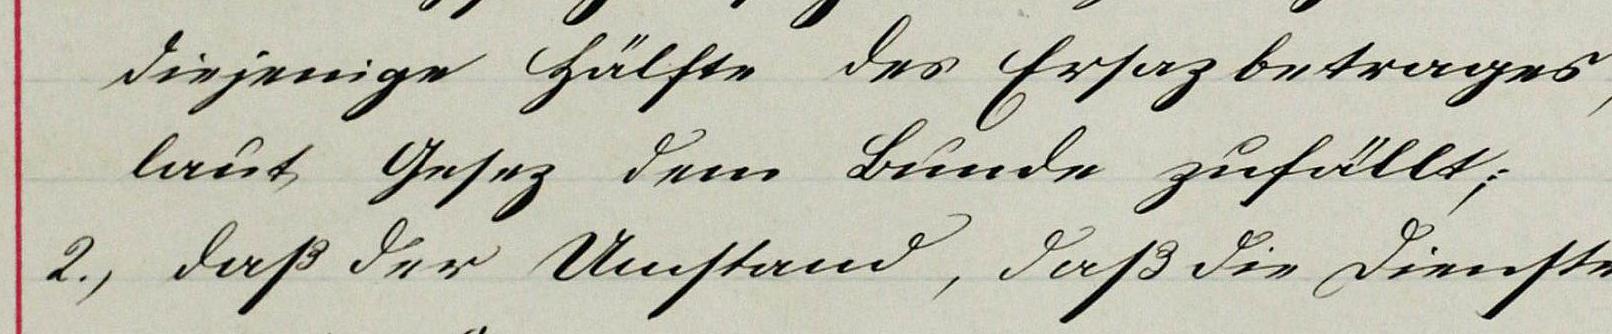 diejenige Hälfte des Ersazbetrages,
laut Gesez dem Bunde zufällt;
2., daß der Umstand, daß die Dienste